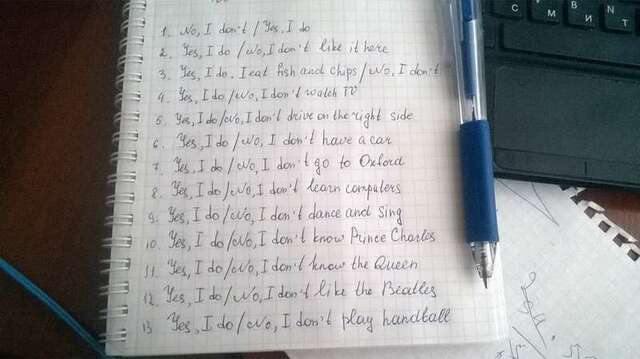 1. No, I don't / Yes, I do
2. Yes, I do / No, I don't like it here
3. Yes, I do. I eat fish and chips / No, I don't
4. Yes, I do / No, I don't watch TV
5. Yes, I do / No, I don't drive on the right side
6. Yes, I do / No, I don't have a car
7. Yes, I do / No, I don't go to Oxford
8. Yes, I do / No, I don't learn computers
9. Yes, I do / No, I don't dance and sing
10. Yes, I do / No, I don't know Prince Charles
11. Yes, I do / No, I don't know the Queen
12. Yes, I do / No, I don't like the Beatles
13 Yes, I do / No, I don't play handball
С М В И Т